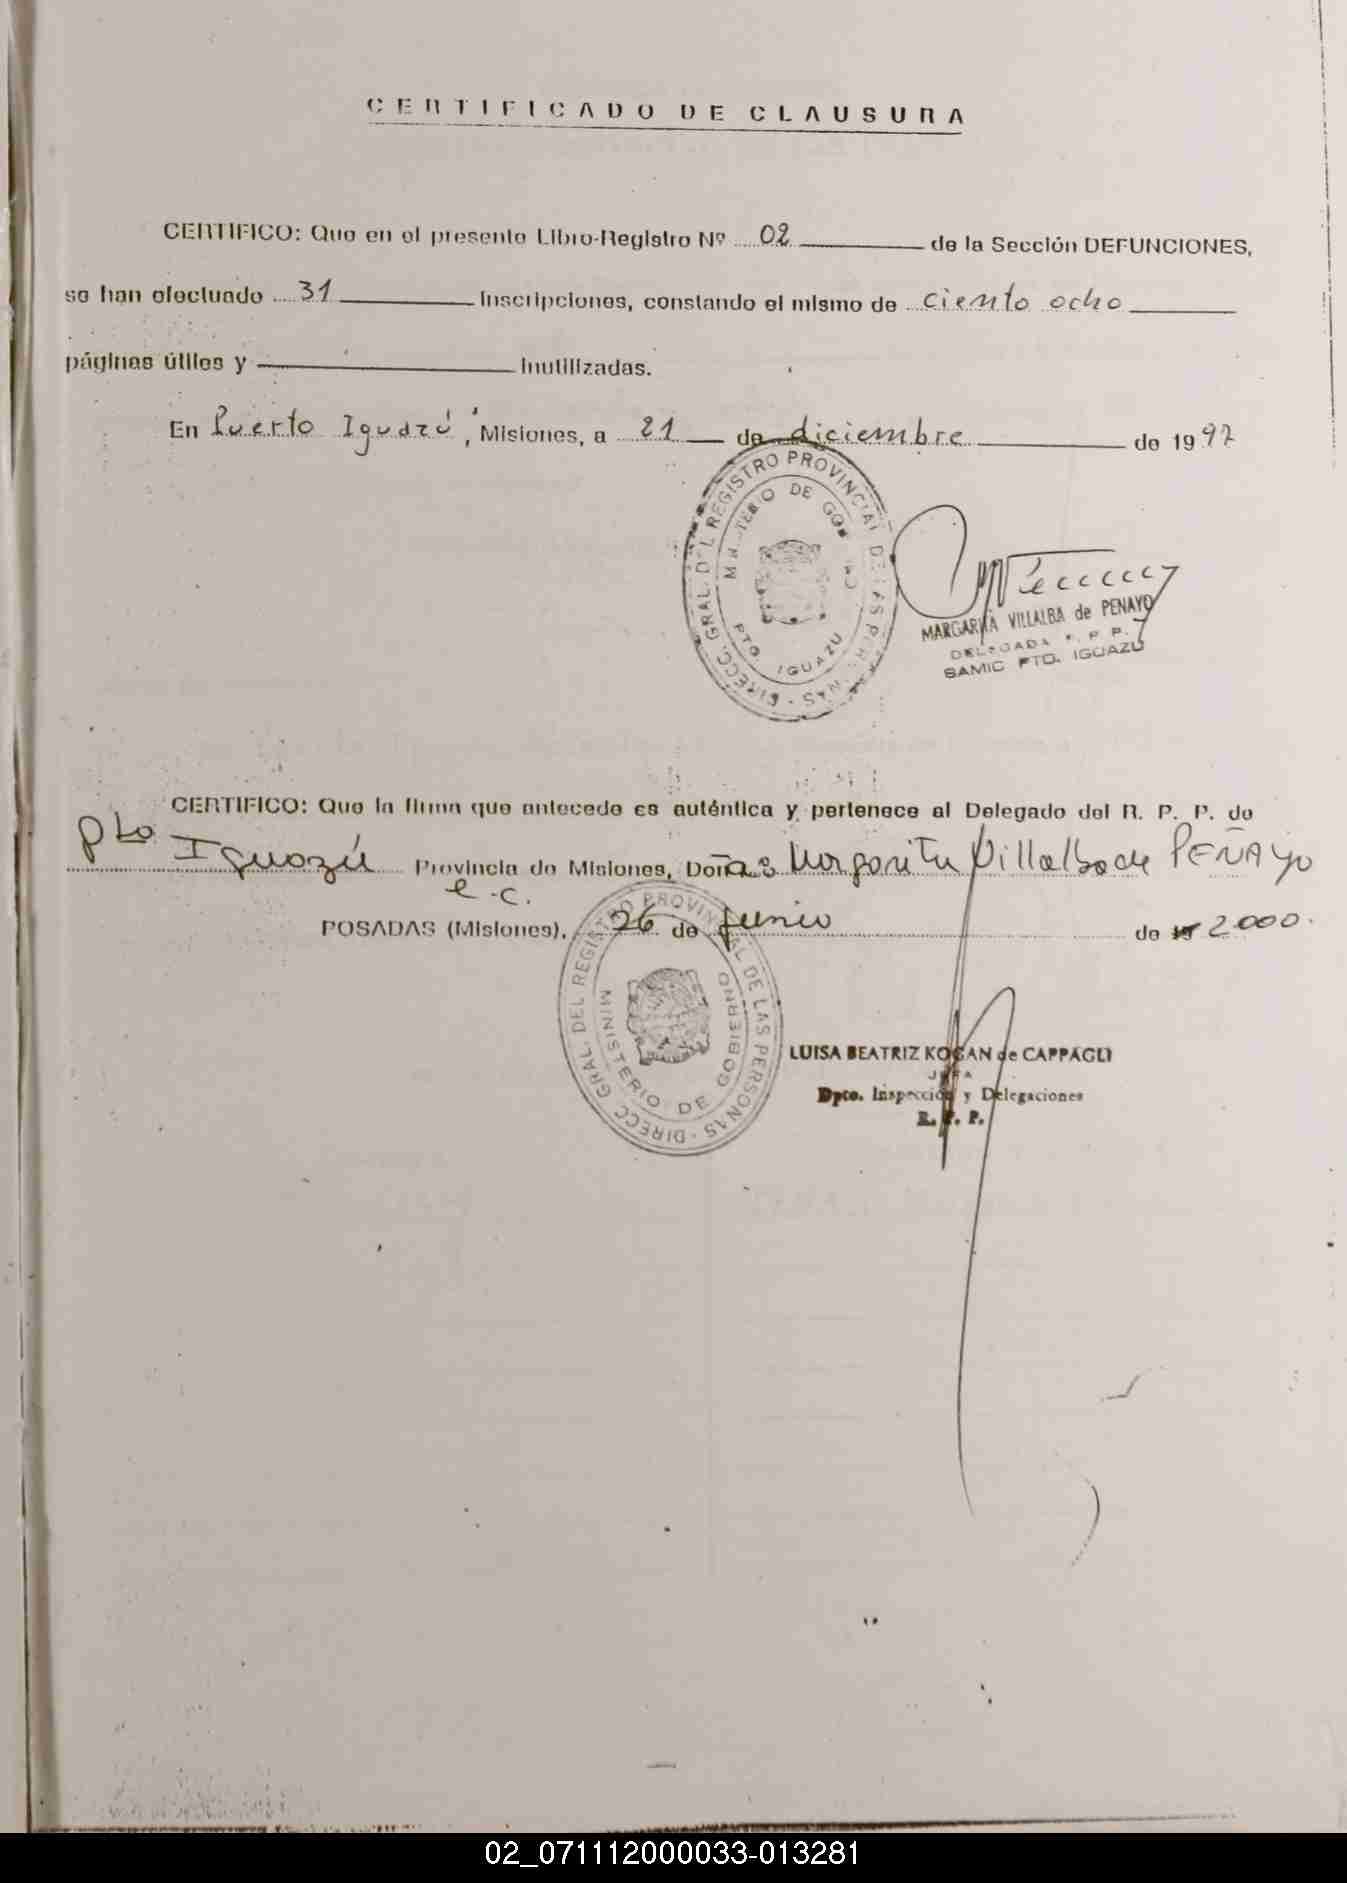 CERTIFICADO DE CLAUSURA
CERTIFICO: Que en el presente Libro-Registro Nº 02 de la Sección DEFUNCIONES,
se han efectuado 31 Inscripciones, constando el mismo de ciento ocho
páginas útiles y inutilizadas.
En Puerto Iguazú, Misiones, a 21 de diciembre de 1997
DIRECC. GRAL. DEL REGISTRO PROVINCIAL DE LAS PERSONAS
MINISTERIO DE GOBIERNO
PTO. IGUAZU
MARGARITA VILLALBA de PENAYO
DELEGADA R. P. P.
SAMIC PTO. IGUAZU
CERTIFICO: Que la firma que antecede es auténtica y pertenece al Delegado del R. P. P. de
Pto Iguazú Provincia de Misiones, Doña Margarita Villalba de PEÑAYO
e.c.
POSADAS (Misiones), 26 de Junio de 19 2000.
DIRECC. GRAL. DEL REGISTRO PROVINCIAL DE LAS PERSONAS
MINISTERIO DE GOBIERNO
LUISA BEATRIZ KOGAN de CAPPAGLI
JEFA
Dpto. Inspección y Delegaciones
R. P. P.
02_071112000033-013281